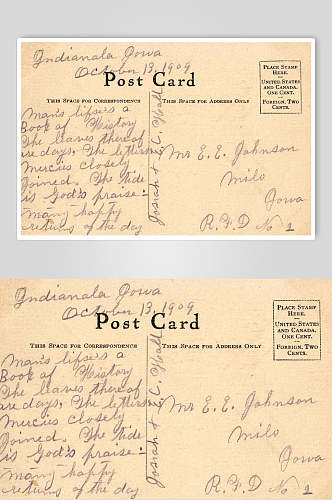 Indianala Iowa
October 13, 1909
Post Card
THIS SPACE FOR CORRESPONDENCE
THIS SPACE FOR ADDRESS ONLY
PLACE STAMP
HERE.
UNITED STATES
AND CANADA,
ONE CENT.
FOREIGN, TWO
CENTS.
Man's life is a
Book of History
The leaves thereof
are days, The letters
Mercies closely
Joined. The tide
is God's praise:
Many happy
returns of the day
Josiah &
Mr E. E. Johnson
Milo
Iowa
R.F.D No 2
Indianala Iowa
October 13, 1909
Post Card
THIS SPACE FOR CORRESPONDENCE
THIS SPACE FOR ADDRESS ONLY
PLACE STAMP
HERE.
UNITED STATES
AND CANADA,
ONE CENT.
FOREIGN, TWO
CENTS.
Man's life is a
Book of History
The leaves thereof
are days, The letters
Mercies closely
Joined. The tide
is God's praise:
Many happy
returns of the day
Josiah &
Mr E. E. Johnson
Milo
Iowa
R.F.D No 2